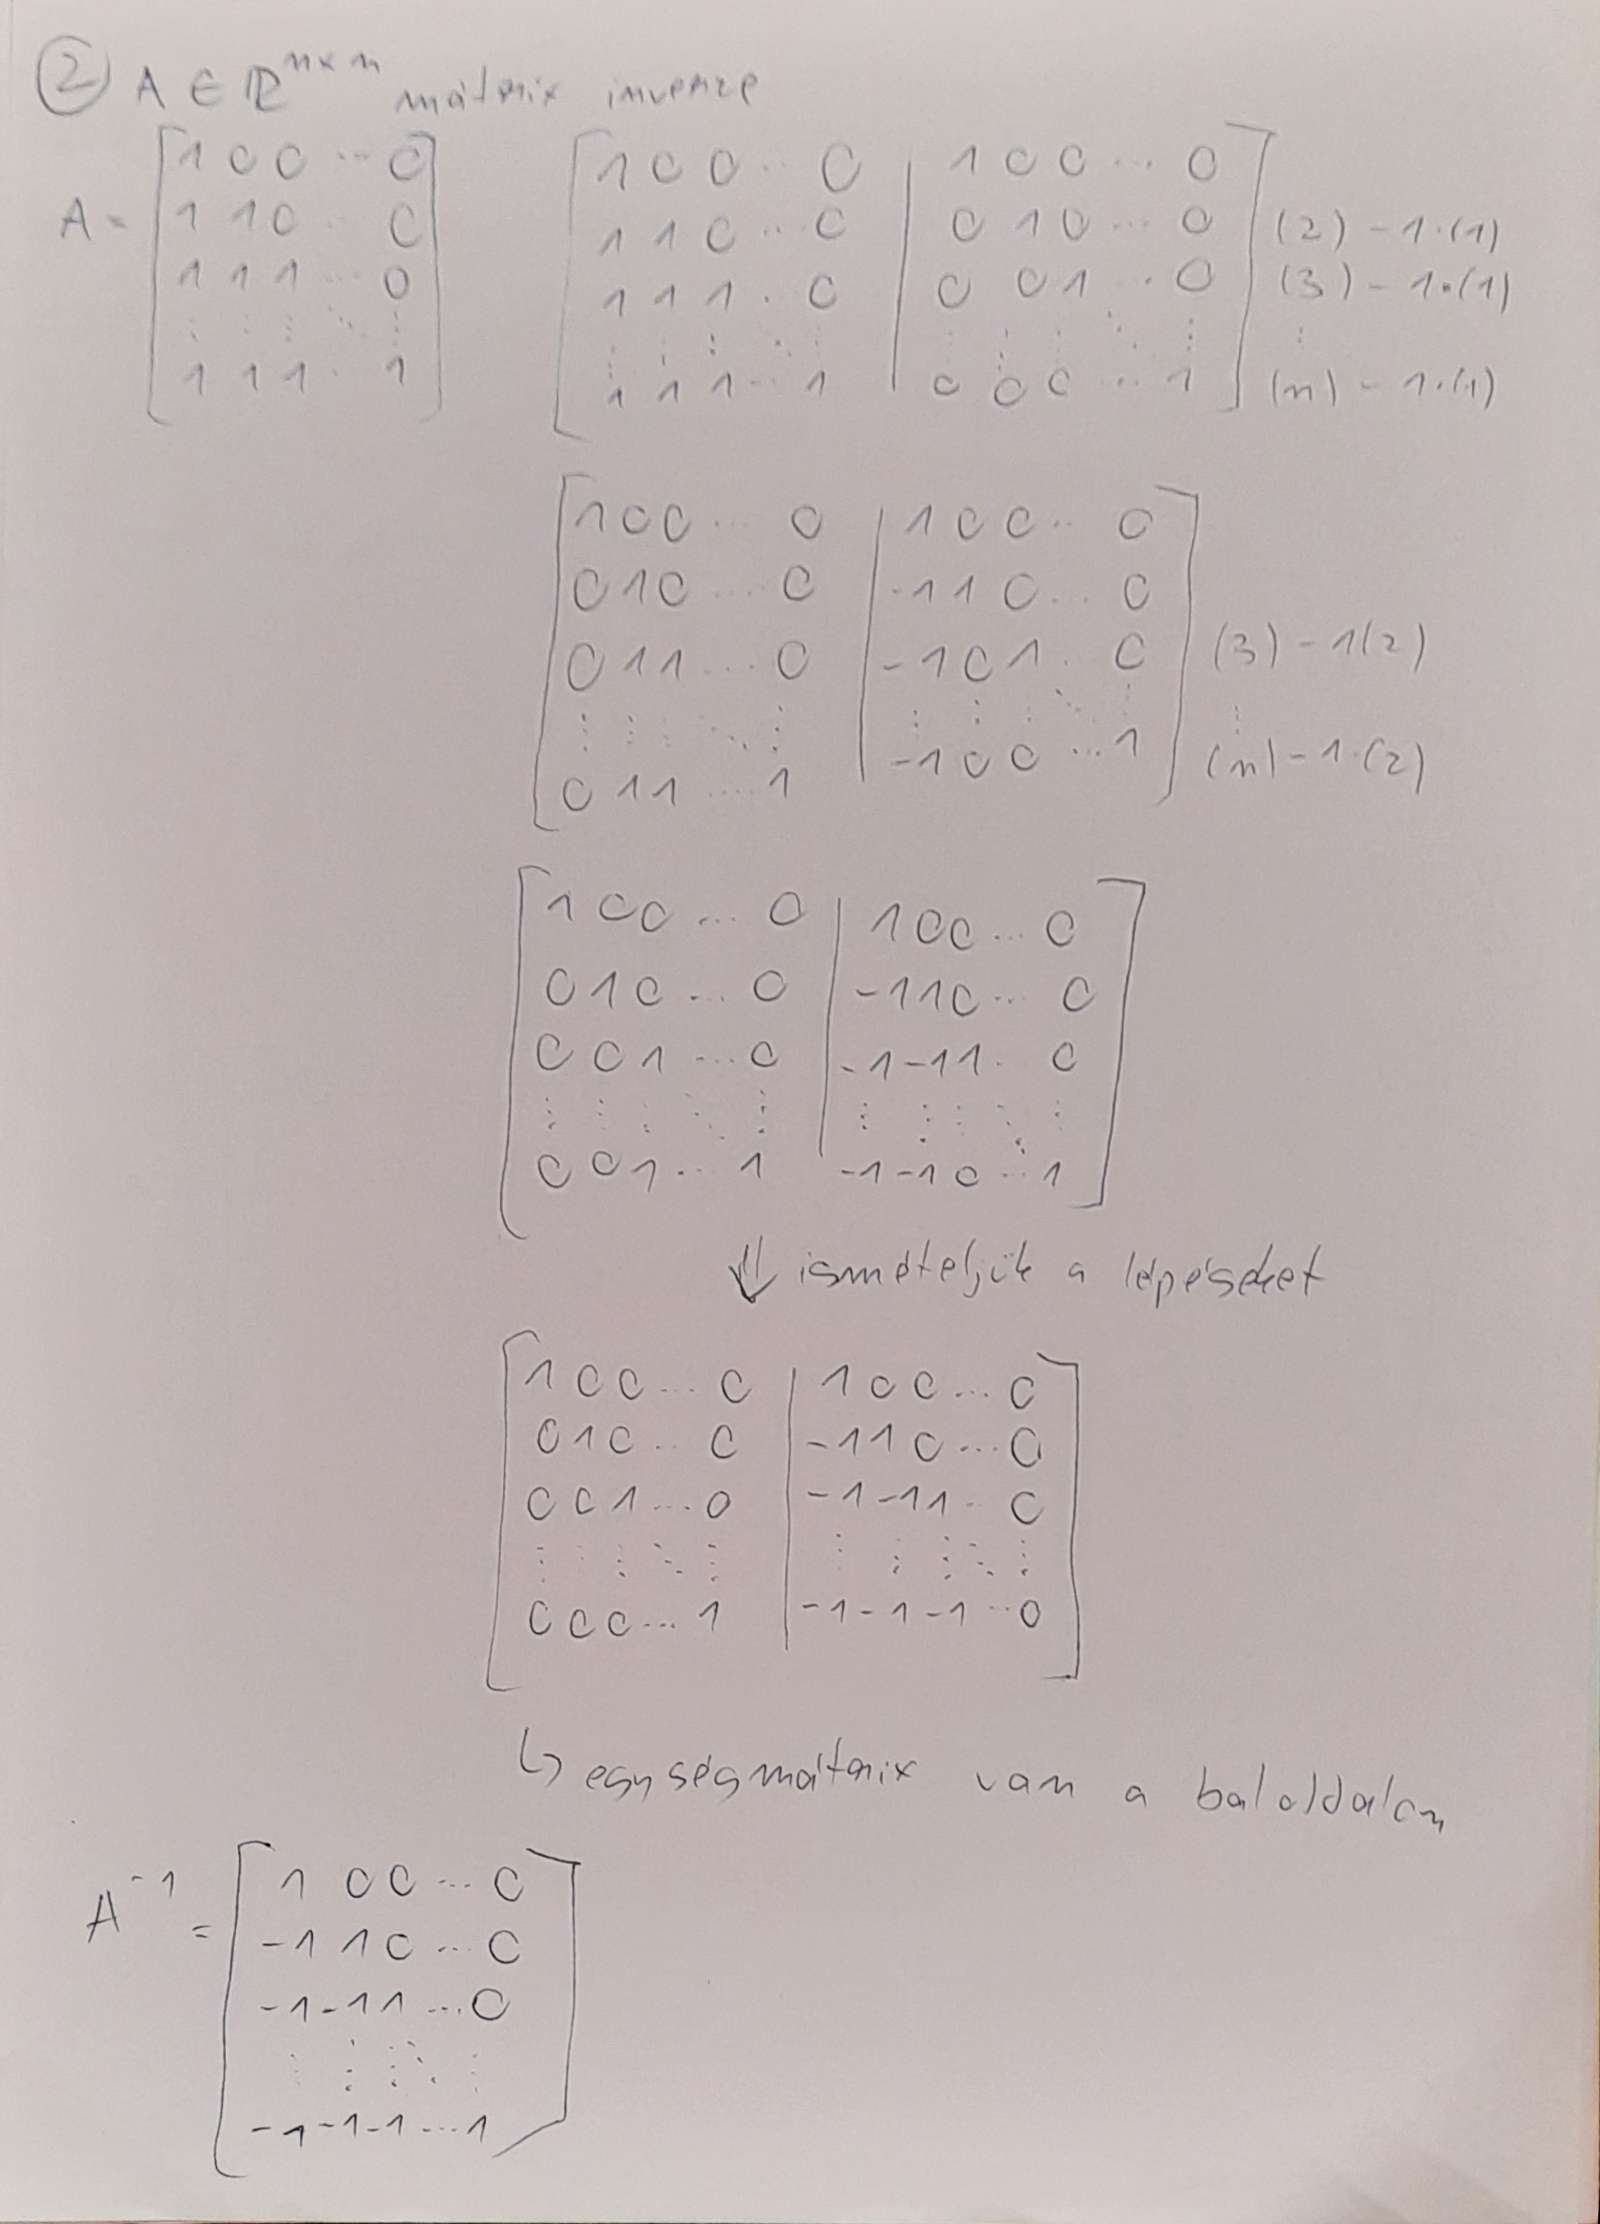 ② A ∈ ℝⁿˣⁿ mátrix inverze
A = [1 0 0 ... 0 [1 0 0 ... 0 | 1 0 0 ... 0]
1 1 0 ... 0 1 1 0 ... 0 | 0 1 0 ... 0 (2) - 1·(1)
1 1 1 ... 0 1 1 1 . 0 | 0 0 1 ... 0 (3) - 1·(1)
⋮ ⋮ ⋮ ⋱ ⋮ ⋮ ⋮ ⋮ ⋱ ⋮ | ⋮ ⋮ ⋮ ⋱ ⋮ ⋮
1 1 1 ... 1] 1 1 1 ... 1 | 0 0 0 ... 1] (n) - 1·(1)
[1 0 0 ... 0 | 1 0 0 ... 0]
0 1 0 ... 0 | -1 1 0 ... 0
0 1 1 ... 0 | -1 0 1 . 0 (3) - 1(2)
⋮ ⋮ ⋱ ⋮ | ⋮ ⋮ ⋮ ⋱ ⋮ ⋮
0 1 1 .... 1 | -1 0 0 ... 1 (n) - 1·(2)
[1 0 0 ... 0 | 1 0 0 ... 0]
0 1 0 ... 0 | -1 1 0 ... 0
0 0 1 ... 0 | -1 -1 1 . 0
⋮ ⋮ ⋮ ⋱ ⋮ | ⋮ ⋮ ⋮ ⋱ ⋮
0 0 1 ... 1 -1 -1 0 ... 1
⇓ ismételjük a lépéseket
[1 0 0 ... 0 | 1 0 0 ... 0]
0 1 0 ... 0 | -1 1 0 ... 0
0 0 1 ... 0 | -1 -1 1 .. 0
⋮ ⋮ ⋮ ⋱ ⋮ | ⋮ ⋮ ⋮ ⋱ ⋮
0 0 0 ... 1 | -1 -1 -1 ... 0
↳ egységmátrix van a baloldalon
A⁻¹ = [1 0 0 ... 0]
-1 1 0 ... 0
-1 -1 1 ... 0
⋮ ⋮ ⋮ ⋱ ⋮
-1 -1 -1 ... 1